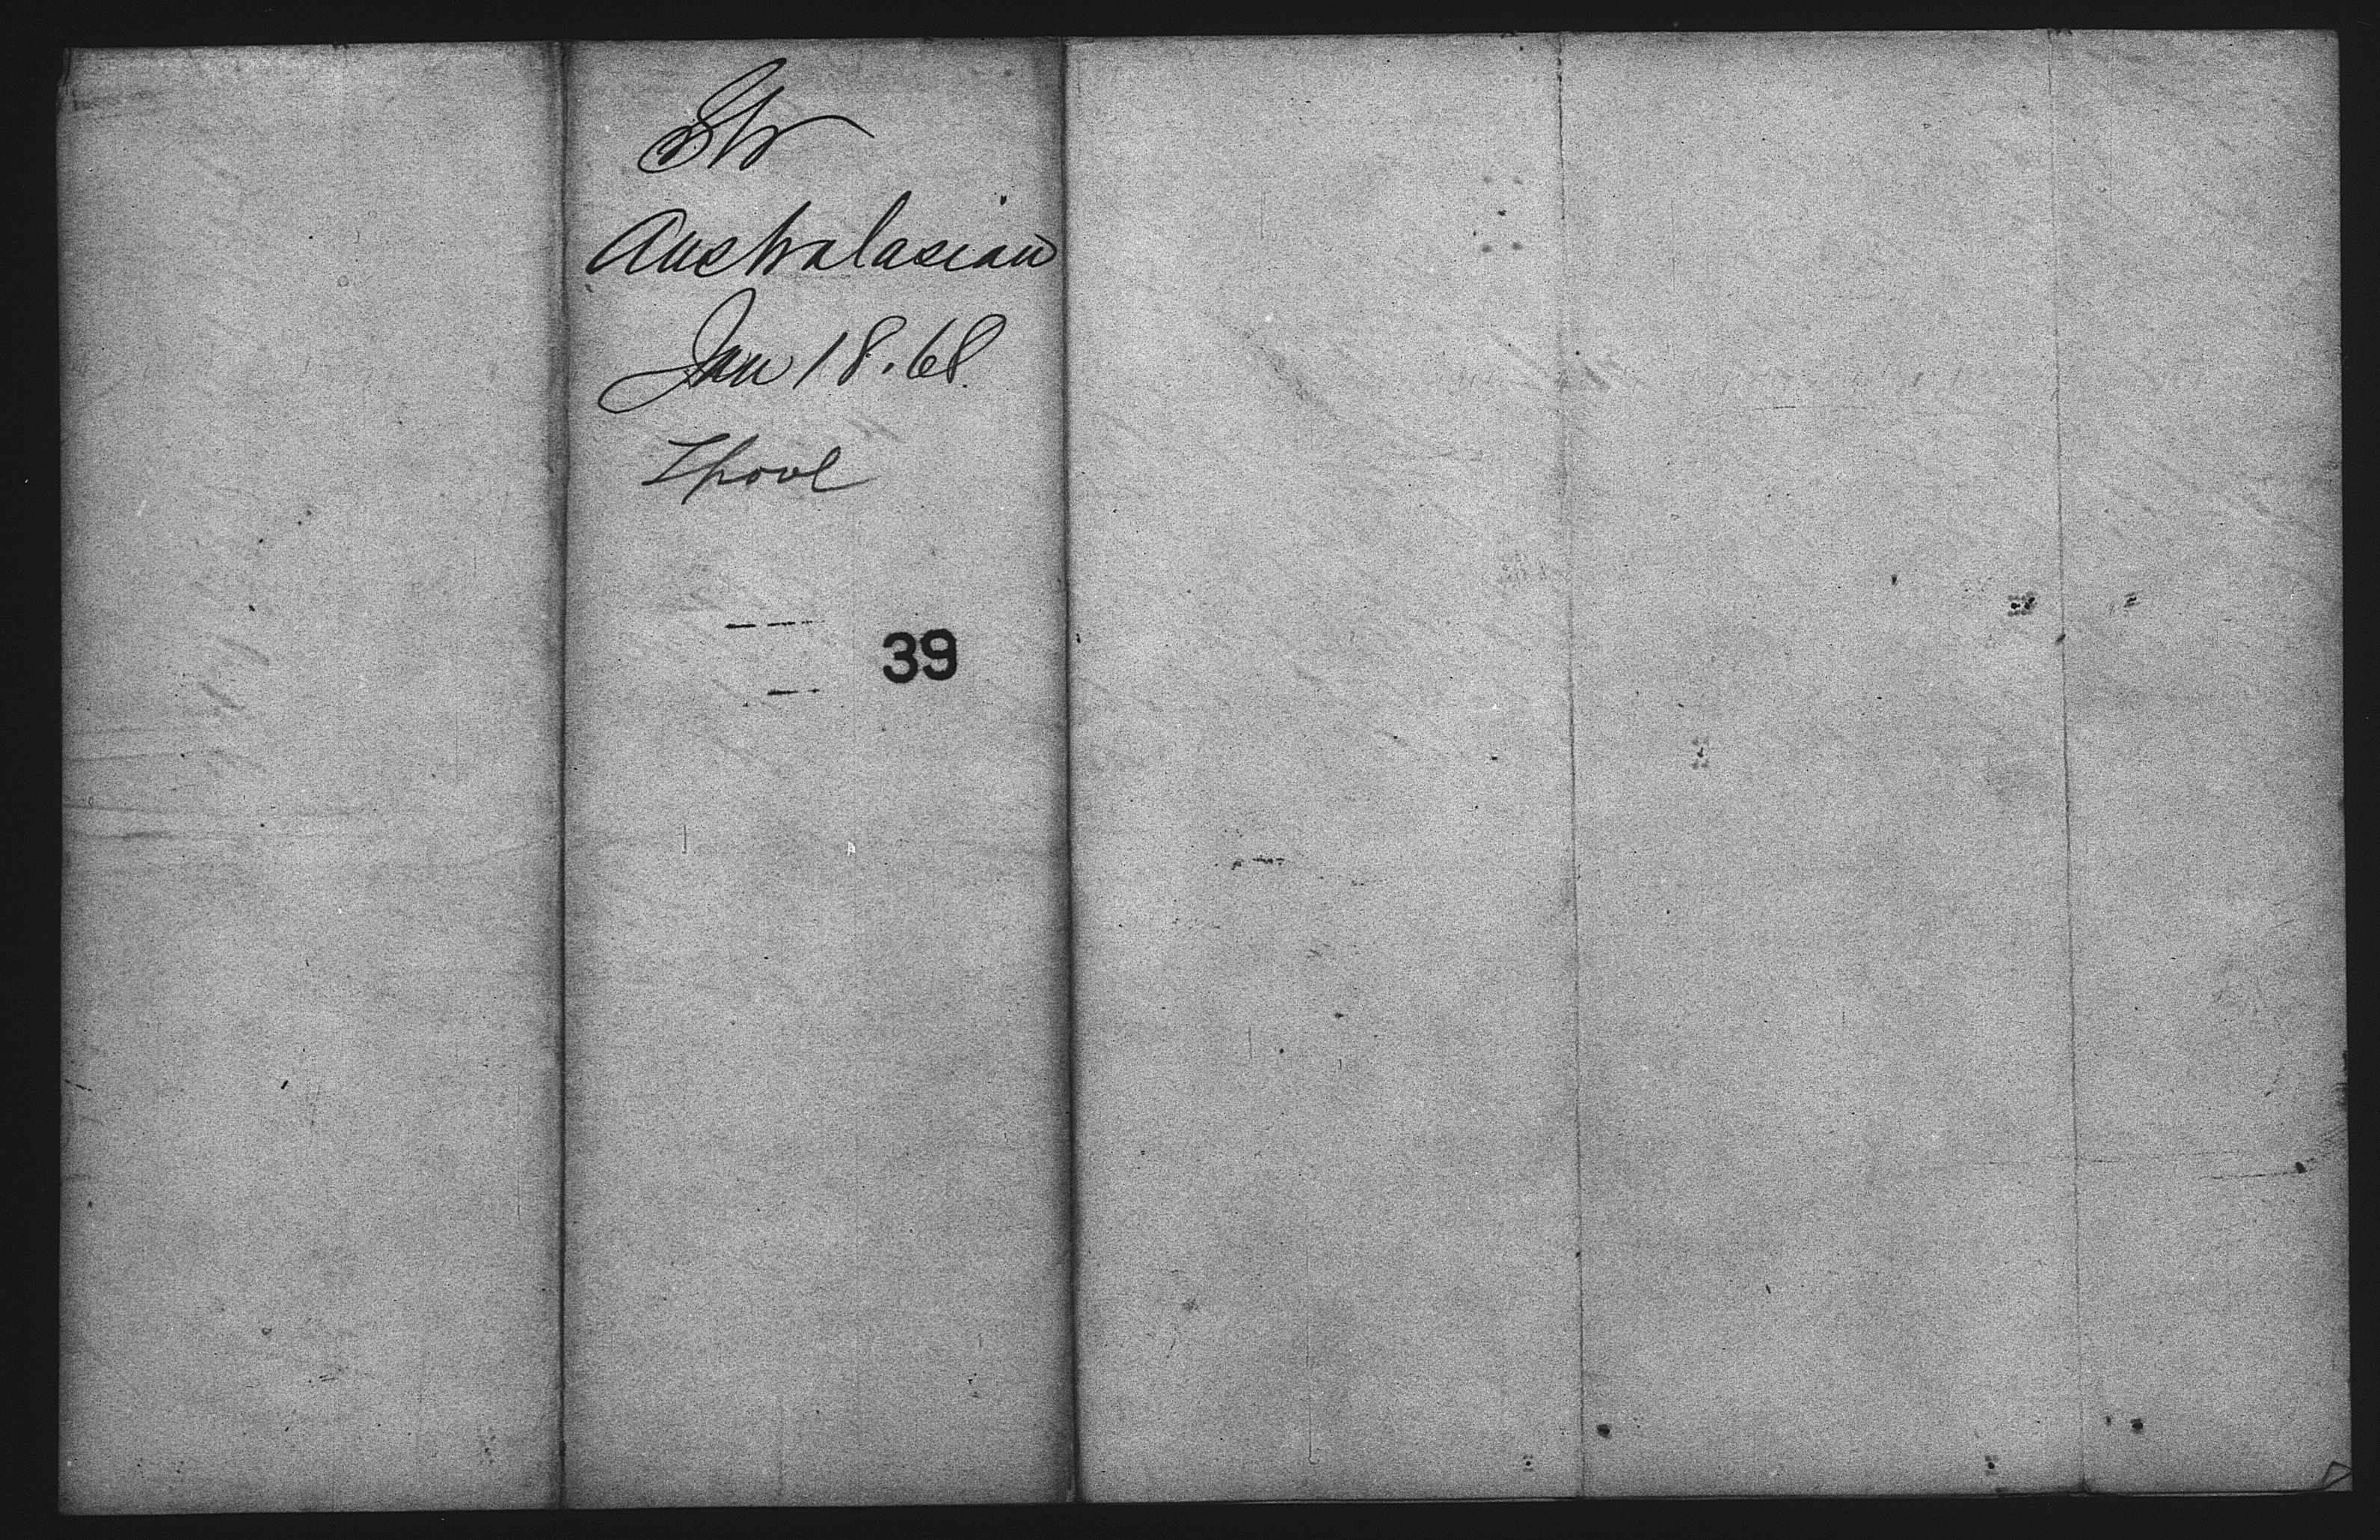 Str
Australasian
Jan 18.68
Lpool
39